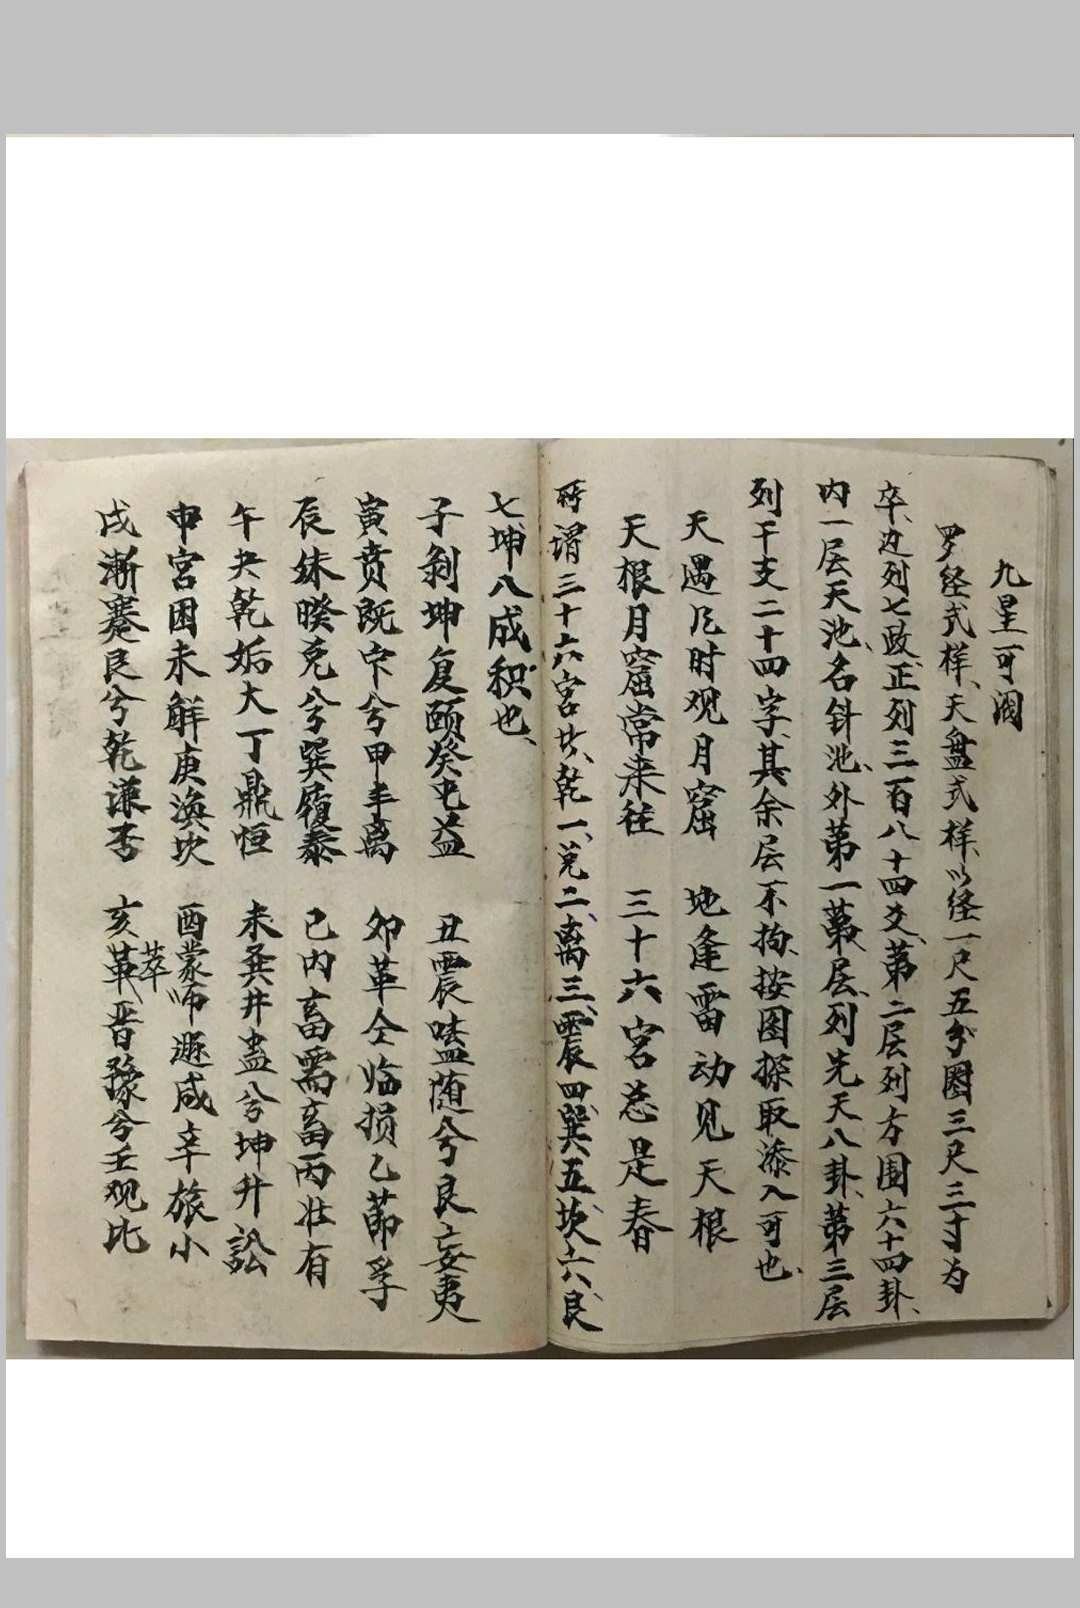 九星可阅
罗经式样、天盘式样、以经一尺五分圈三尺三寸为
卒、边列七政、正列三百八十四爻、第二层列方围六十四卦、
内一层天池、名针池、外第一第层、列先天八卦、第三层
列干支二十四字、其余层不拘、按图探取添入可也、
天遇 时观月窟 地逢雷动见天根
天根月窟常来往 三十六宫总是春
所谓三十六宫 乾一、兑二、离三、震四、巽五、坎六、艮
七、坤八成积也、
子剥坤复颐癸屯益 丑震嗑随兮艮妄夷
寅贲既 兮甲丰离 卯革仝临损乙节孚
辰妹暌兑兮巽履泰 巳内畜需畜丙壮有
午夬乾姤大丁鼎恒 未巽井蛊兮坤升訟
申宫困未解庚渙坎 酉蒙师遯咸辛旅小
戌漸蹇艮兮乾谦否 亥萃晋豫兮壬观比
萃